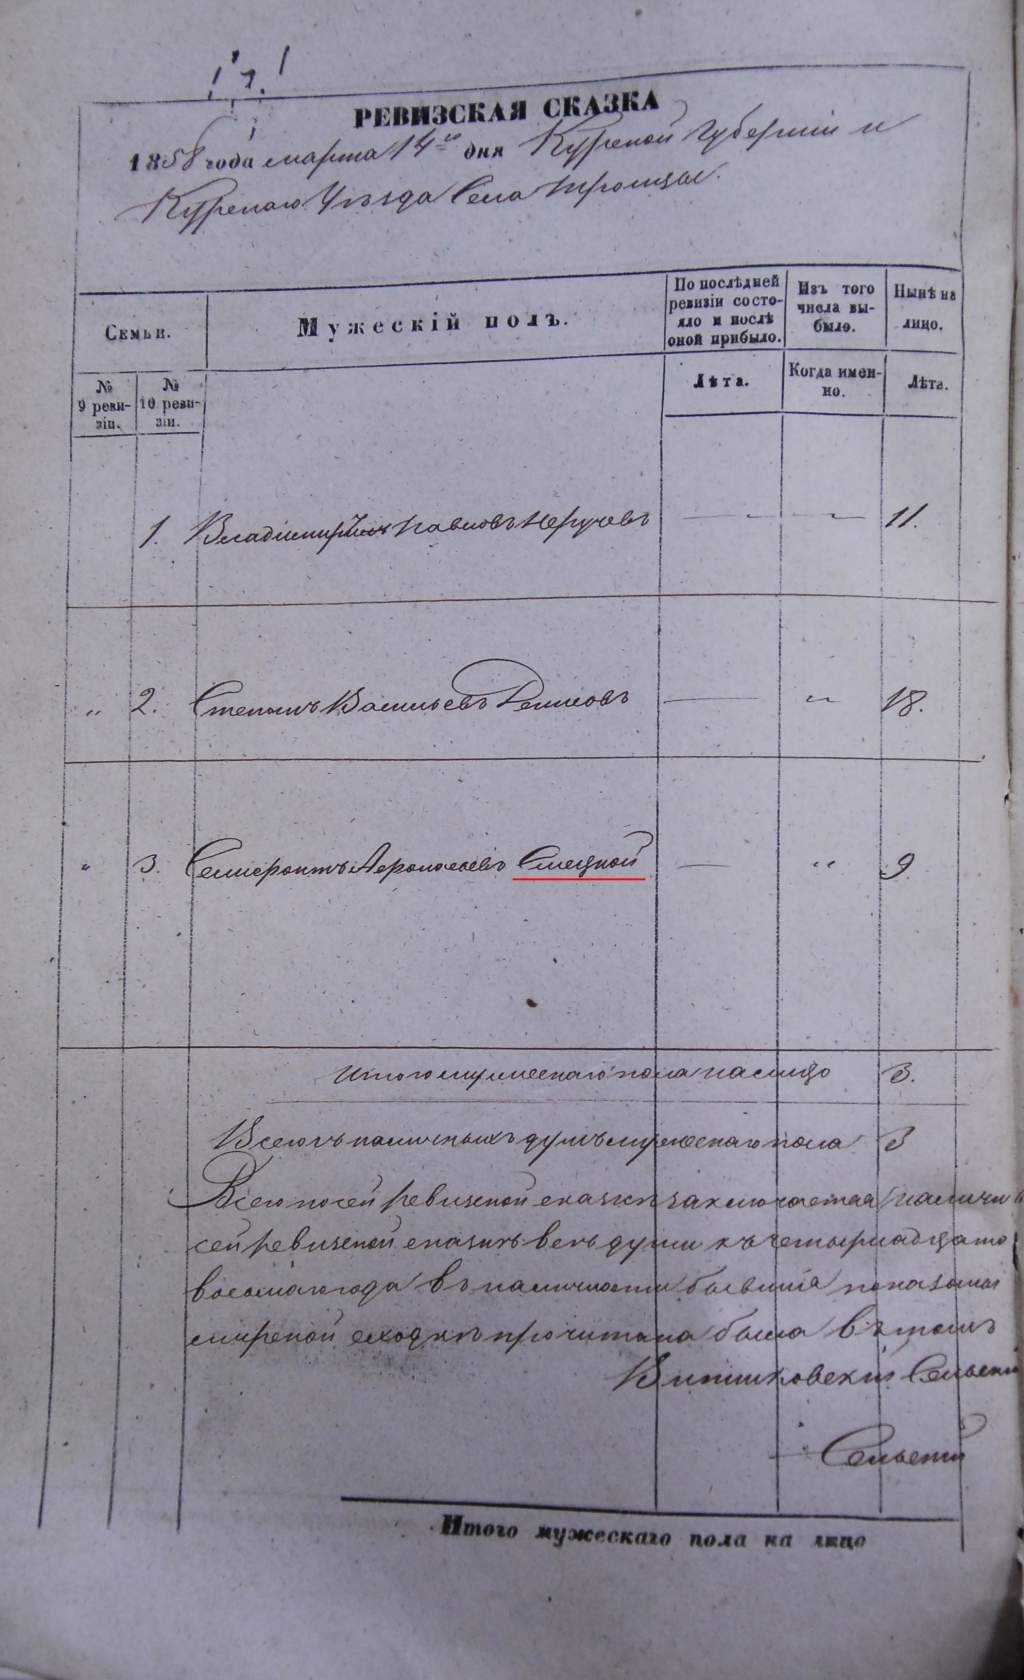 РЕВИЗСКАЯ СКАЗКА
1858 года марта 14го дня Курской Губернии и
Курскаго Уѣзда Села Троицы.
Семьи.
Мужескій полъ.
По послѣдней ревизіи состояло и послѣ оной прибыло.
Изъ того числа выбыло.
Нынѣ на лицо.
№ 9 ревизіи.
№ 10 ревизіи.
Лѣта.
Когда именно.
Лѣта.
1. Владиміръ Павловъ 11.
„ 2. Степанъ Васильевъ — „ 18.
„ 3. Смецкой — „ 9.
Итого мужескаго пола на лицо 3.
Всего наличныхъ душъ мужескаго пола 3
Всего по сей ревизской сказкѣ заключается
сей ревизской сказкѣ всѣ души къ четырнадцато
года въ наличности бывшія показаны
мирской сходкѣ прочитана была въ томъ
Сельскій
Сельскій
Итого мужескаго пола на лицо